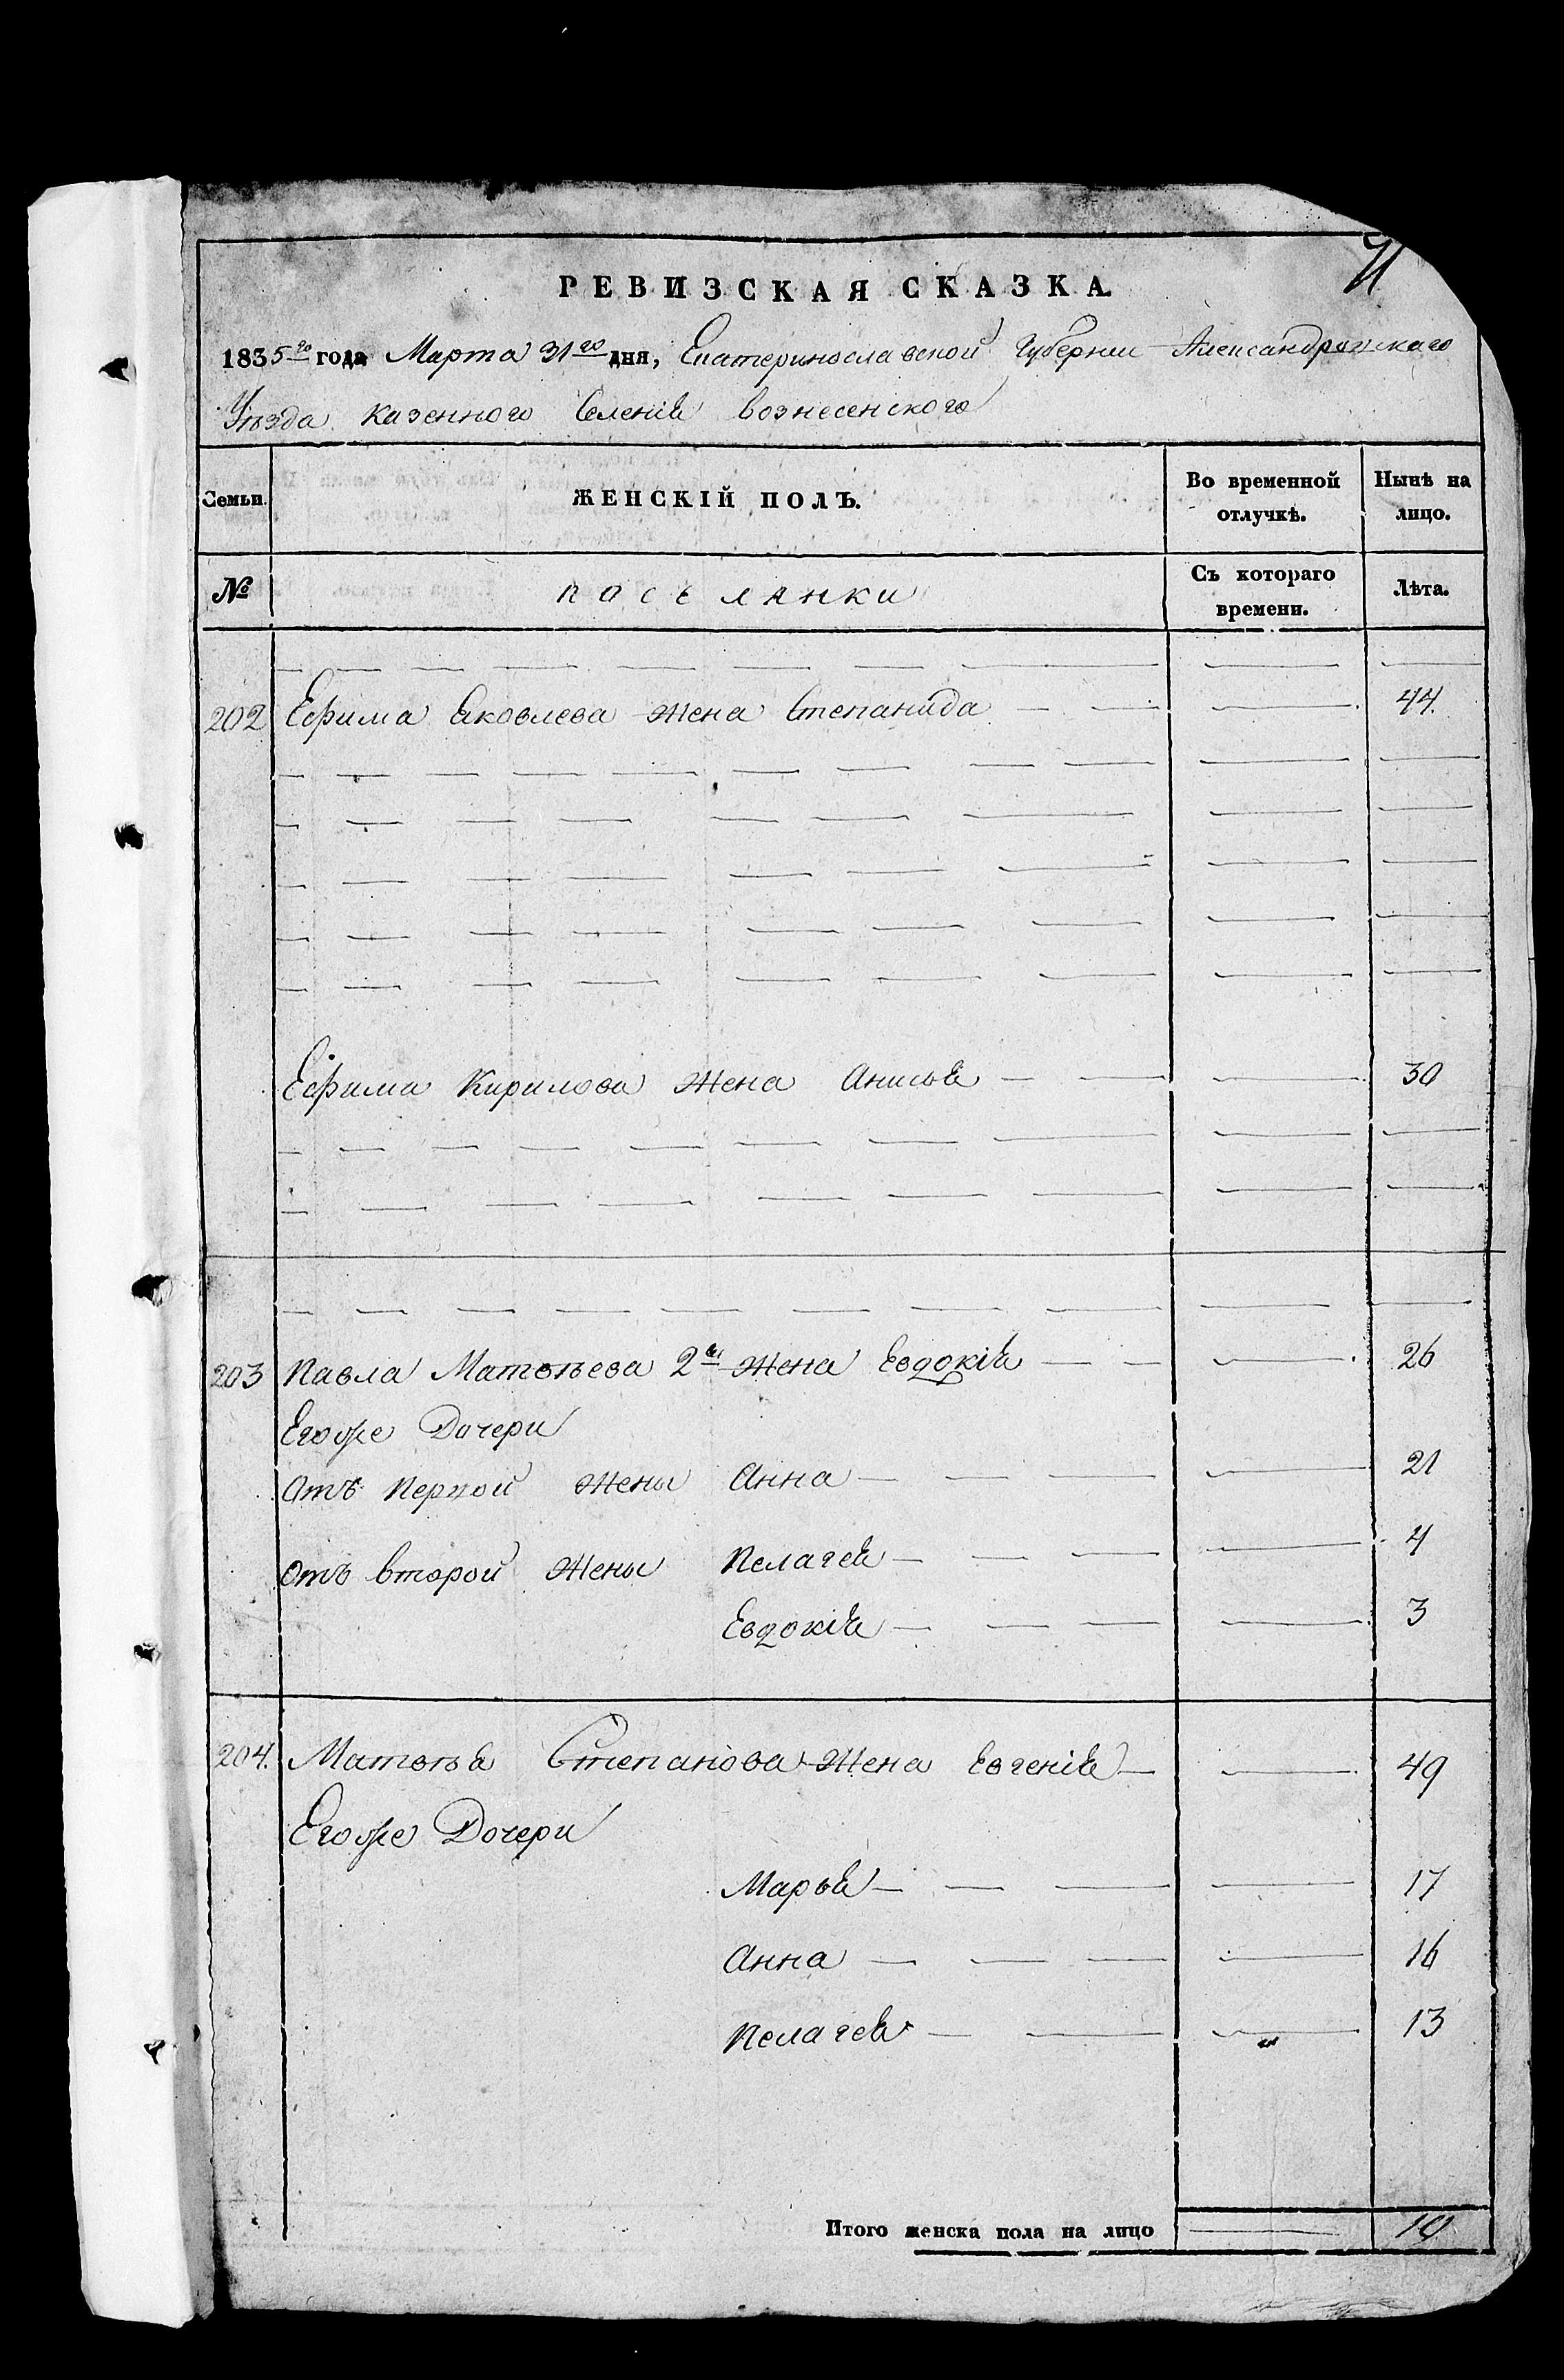 71
РЕВИЗСКАЯ СКАЗКА.
1835го года Марта 31го дня, Екатеринославской Губернии Александровскаго
Уѣзда казенного Селенія вознесенского
Семьи. ЖЕНСКІЙ ПОЛЪ. Во временной отлучкѣ. Нынѣ на лицо.
№ поселянки Съ котораго времени. Лѣта.
202 Ефима Яковлева жена Степанида — — — 44.
Ефима Кирилова жена Анисья — — — 30
203 Павла Матвѣева 2я жена Евдокія — — — 26
Егоже Дочери
Отъ первой жены Анна — — — — 21
Отъ второй жены Пелагея — — — — 4
Евдокія — — — — 3
204. Матвѣя Степанова жена Евгенія — — 49
Егоже Дочери
Марья — — — — 17
Анна — — — — 16
Пелагея — — — 13
Итого женска пола на лицо — 10